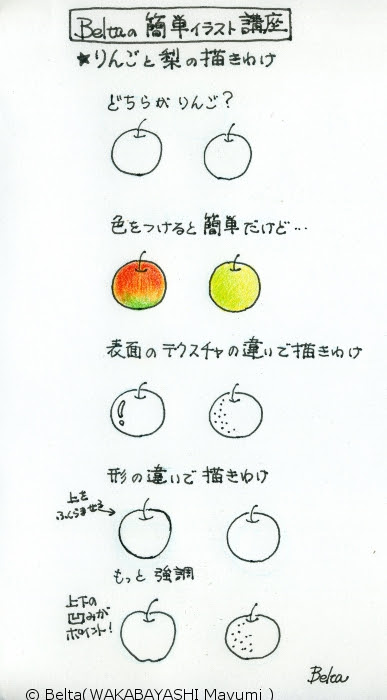 Beltaの簡単イラスト講座
★りんごと梨の描きわけ
どちらがりんご?
色をつけると簡単だけど…
表面のテクスチャの違いで描きわけ
形の違いで描きわけ
上を
ふくらませる
もっと強調
上下の
凹みが
ポイント!
Belta
© Belta( WAKABAYASHI Mayumi )